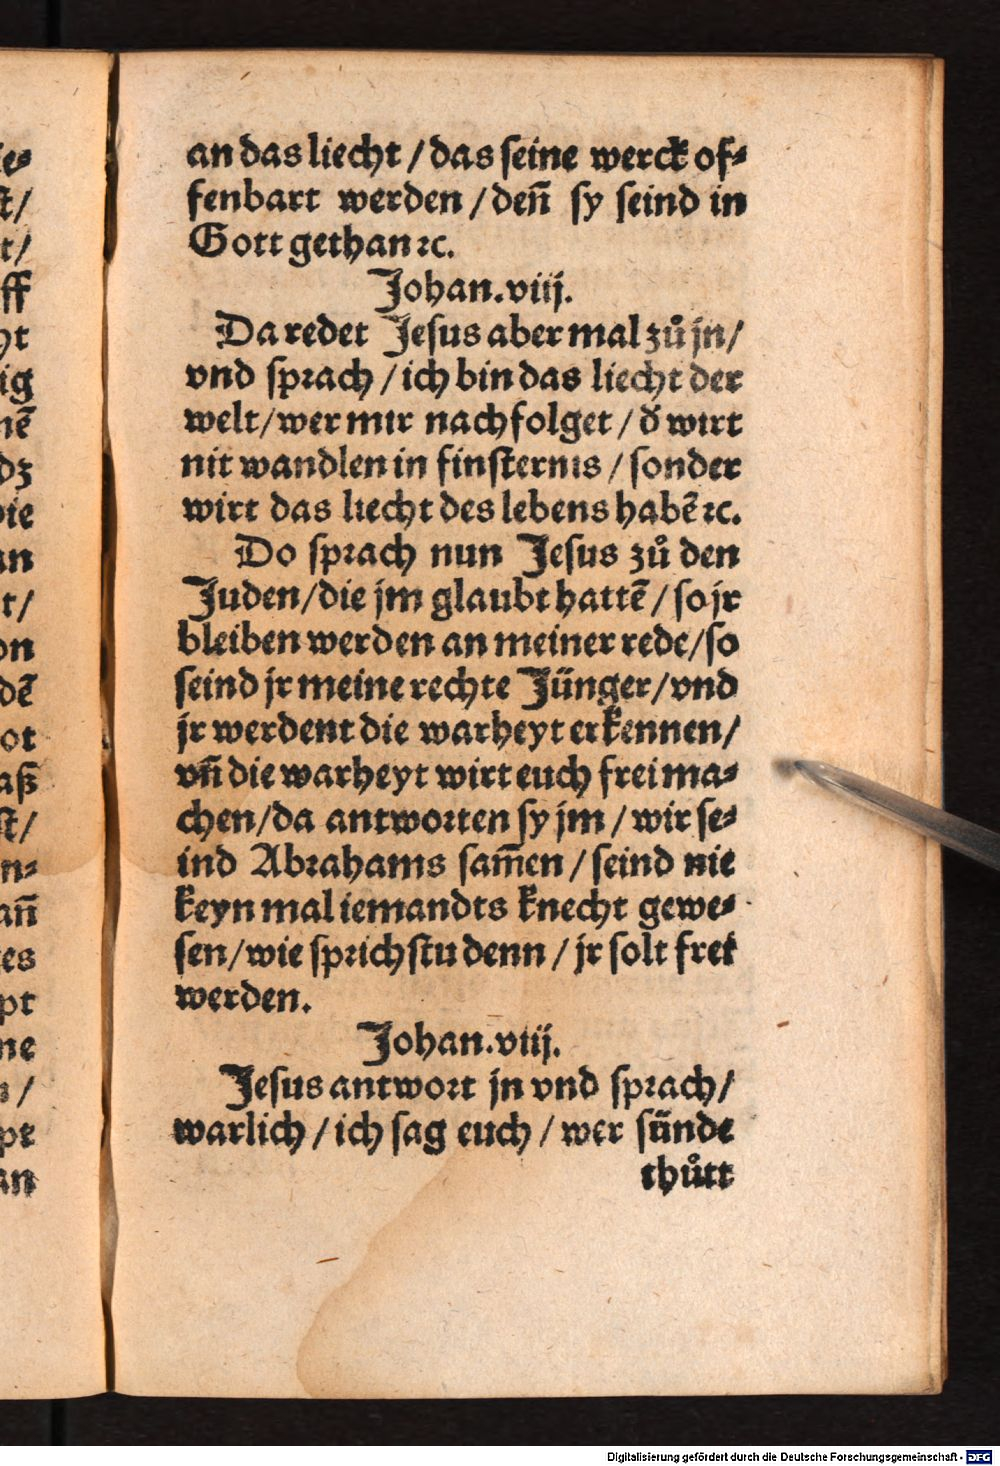 an das liecht / das seine werck of⸗
fenbart werden / deñ sy seind in
Gott gethan ꝛc.
Johan. viij.
Da redet Jesus aber mal zů jn /
vnd sprach / ich bin das liecht der
welt / wer mir nachfolget / d̓ wirt
nit wandlen in finsternis / sonder
wirt das liecht des lebens habẽ ꝛc.
Do sprach nun Jesus zů den
Juden / die jm glaubt hattẽ / so jr
bleiben werden an meiner rede / so
seind jr meine rechte Jünger / vnd
jr werdent die warheyt erkennen /
vñ die warheyt wirt euch frei ma⸗
chen / da antworten sy jm / wir se⸗
ind Abrahams sam̃en / seind nie
keyn mal iemandts knecht gewe⸗
sen / wie sprichstu denn / jr solt frei
werden.
Johan. viij.
Jesus antwort jn vnd sprach /
warlich / ich sag euch / wer sünde
thůtt
Digitalisierung gefördert durch die Deutsche Forschungsgemeinschaft - DFG